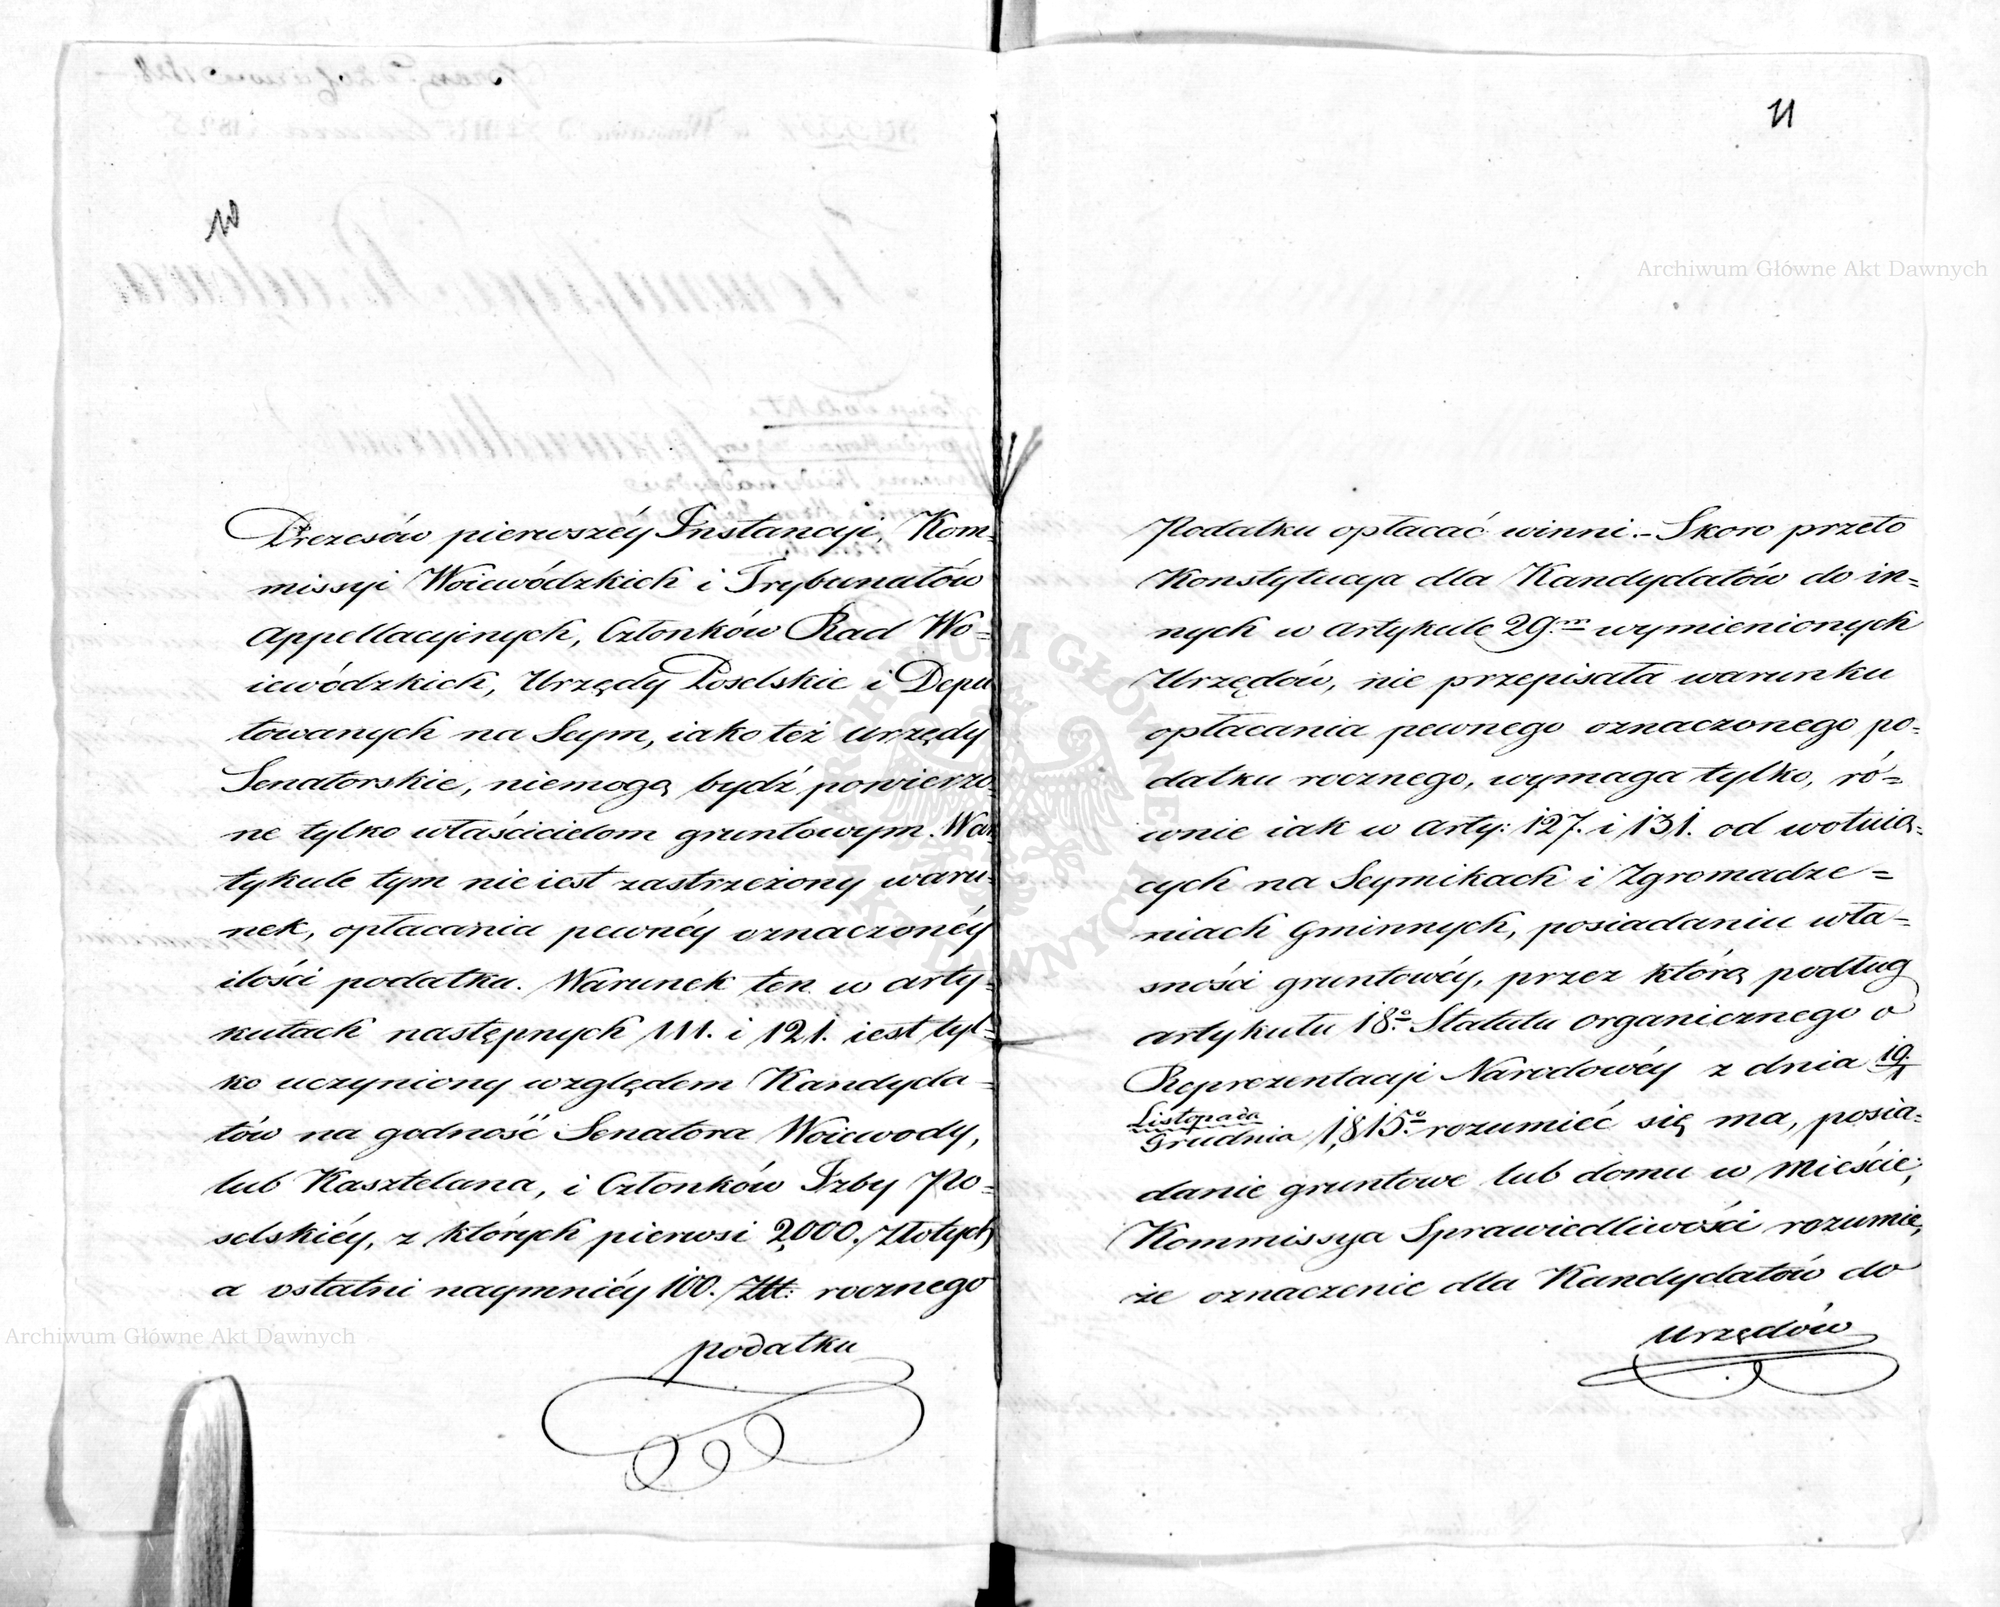 10
Prezesów pierwszéy Instancyi, Kom-
missyi Woiewódzkich i Trybunałów
Appellacyinych, Członków Rad Wo=
iewódzkich, Urzędy Poselskie i Depu
towanych na Seym, iako też urzędy
Senatorskie, niemogą bydź powierzo-
ne tylko właścicielom gruntowym. W Ar
tykule tym nie iest zastrzeżony waru-
nek, opłacania pewnéy oznaczonéy
ilości podatku. Warunek ten w arty-
kułach następnych 111. i 121. iest tyl-
ko uczyniony względem Kandyda-
tów na godność Senatora Woiewody,
lub Kasztelana, i Członków Izby Po-
selskiéy, z których pierwsi 2,000. Złotych
a ostatni naymniéy 100. Złt: rocznego
podatku
11
Podatku opłacać winni.- Skoro przeto
Konstytucya dla Kandydatów do in=
nych w artykule 29.m wymienionych
Urzędów, nie przepisała warunku
opłacania pewnego oznaczonego po-
datku rocznego, wymaga tylko, ró=
wnie iak w arty: 127. i 131. od wotuią=
cych na Seymikach i Zgromadze=
niach Gminnych, posiadaniu wła-
sności gruntowéy, przez którą podług
artykułu 18.o Statutu organicznego o
Reprezentacyi Narodowéy z dnia 19./1
Listopada
Grudnia 1,815.o rozumieć się ma, posia-
danie gruntowe lub domu w Mieście;
Kommissya Sprawiedliwości rozumie,
że oznaczenie dla Kandydatów do
Urzędów
Archiwum Główne Akt Dawnych
Archiwum Główne Akt Dawnych
ARCHIWUM GŁÓWNE AKT DAWNYCH